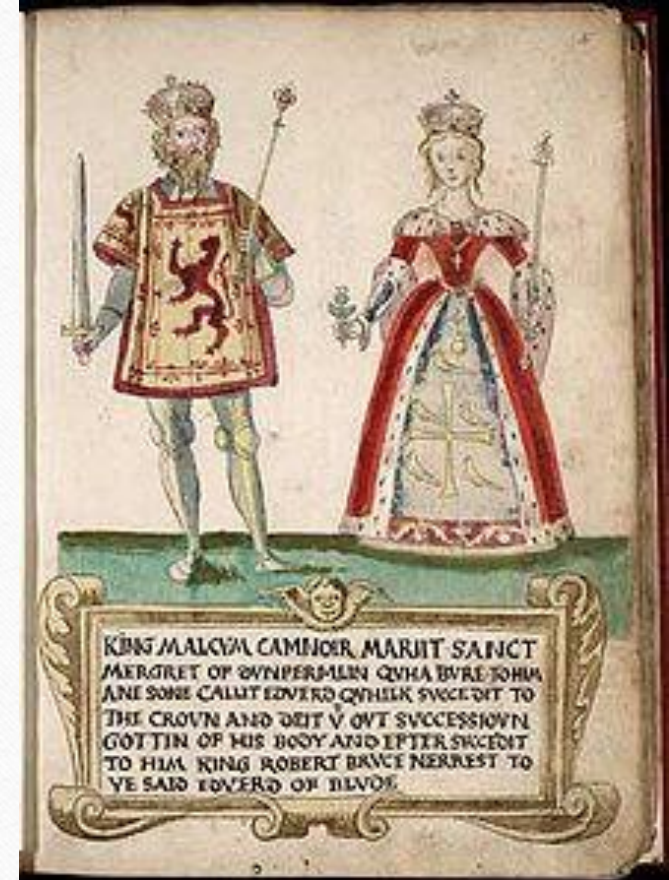 KING MALCVM CAMNOIR MARIIT SANCT
MERGRET OF DVNFERMLIN QVHA BVRE TO HIM
ANE SONE CALLIT EDVERD QVHILK SVCCEDIT TO
THE CROVN AND DEIT VͭOVT SVCCESSIOVN
GOTTIN OF HIS BODY AND EFTER SVCCEDIT
TO HIM KING ROBERT BRVCE NERREST TO
YE SAID EDVERD OF BLVDE